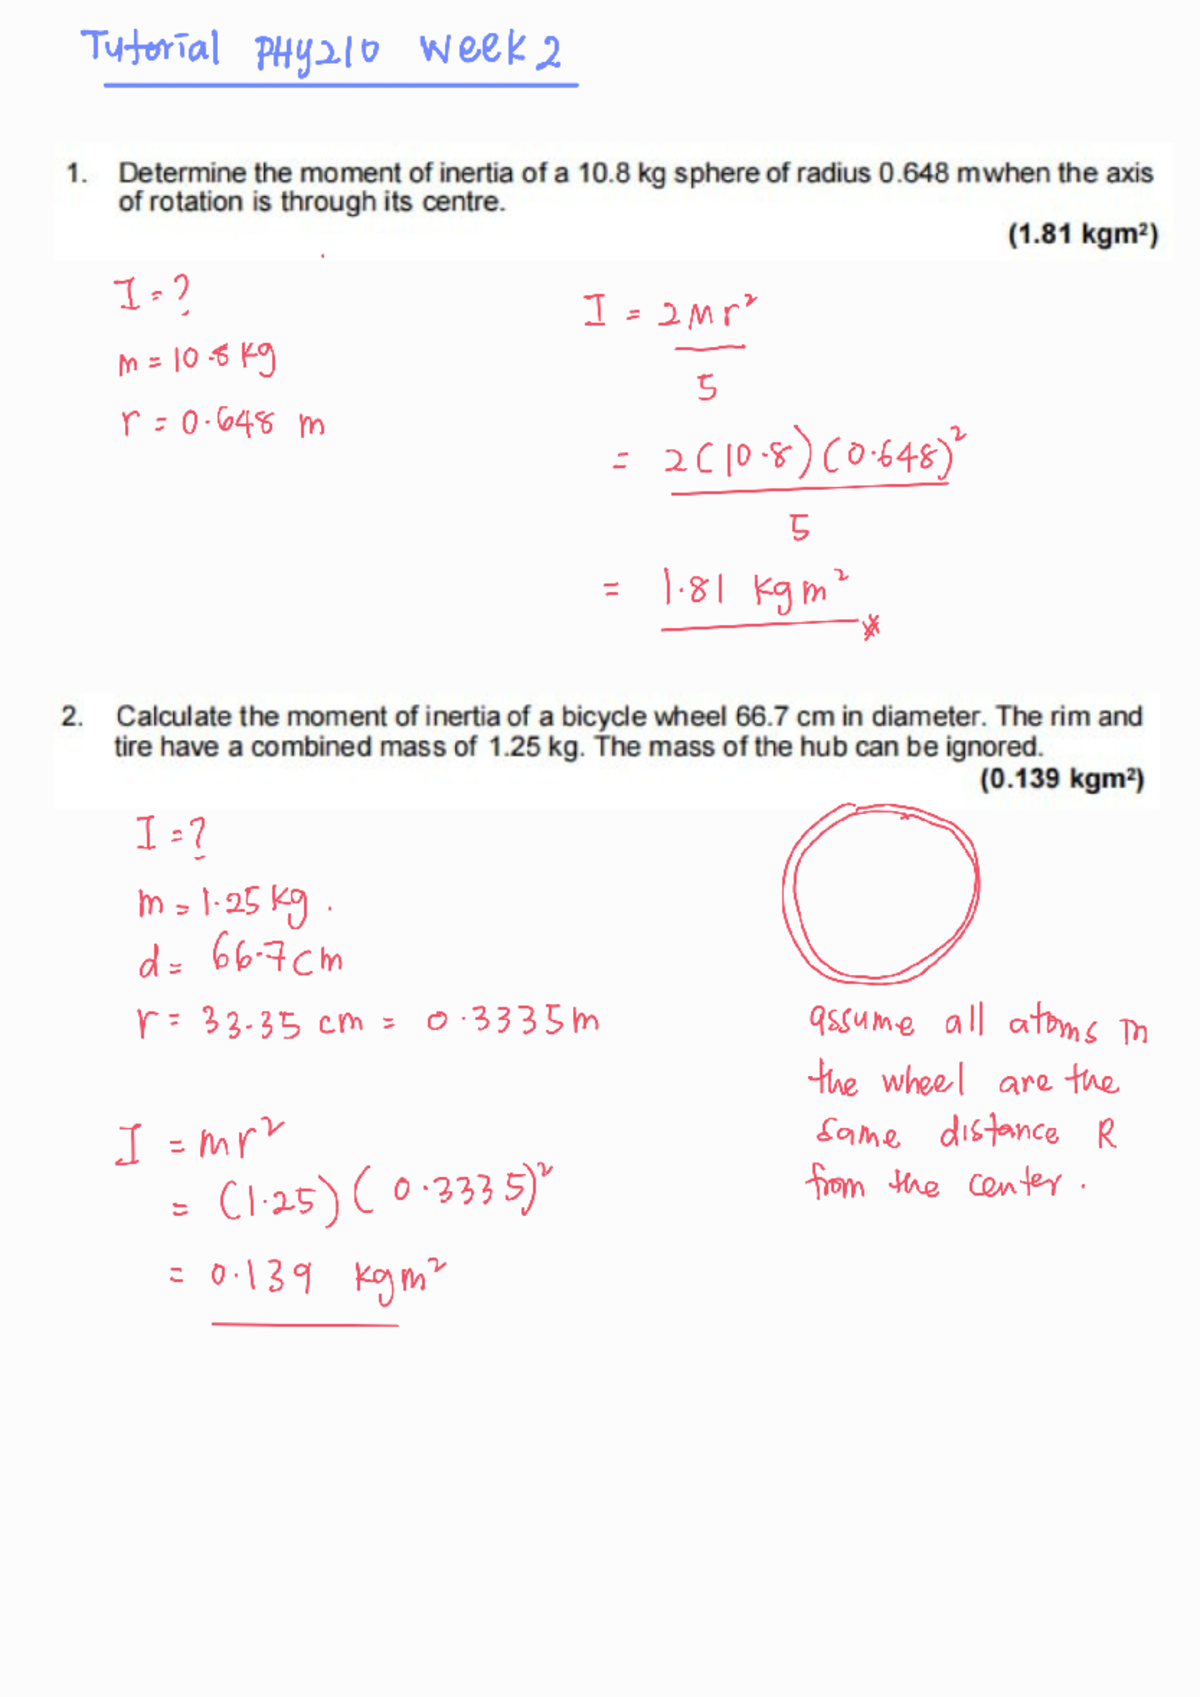 Tutorial PHY210 Week 2
1. Determine the moment of inertia of a 10.8 kg sphere of radius 0.648 mwhen the axis
of rotation is through its centre.
(1.81 kgm²)
I = ?
m = 10.8 kg
r = 0.648 m
I = 2Mr²
5
= 2(10.8)(0.648)²
5
= 1.81 kgm²
2. Calculate the moment of inertia of a bicycle wheel 66.7 cm in diameter. The rim and
tire have a combined mass of 1.25 kg. The mass of the hub can be ignored.
(0.139 kgm²)
I = ?
m = 1.25 kg.
d = 66.7 cm
r = 33.35 cm = 0.3335 m
I = mr²
= (1.25)(0.3335)²
= 0.139 kgm²
assume all atoms in
the wheel are the
same distance R
from the center.